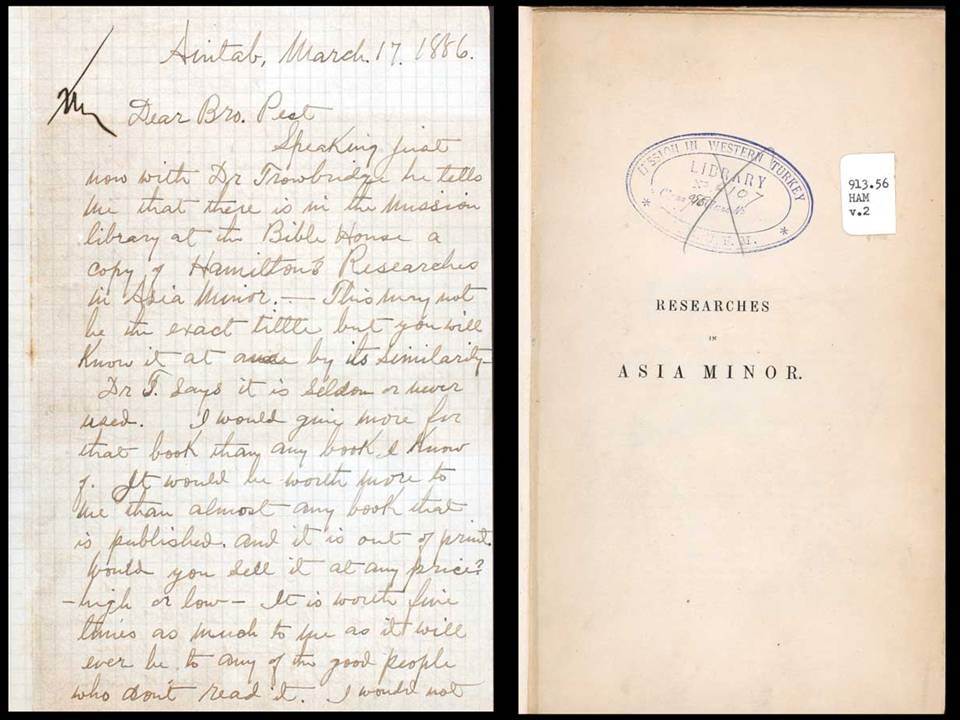 Aintab, March. 17. 1886.
Dear Bro. Peet
Speaking just
now with Dr Trowbridge he tells
me that there is in the mission
library at the Bible House a
copy of Hamilton's Researches
in Asia Minor. — This may not
be the exact tittle but you will
know it at by its similarity
Dr T. says it is seldom or never
used. I would give more for
that book than any book I know
of. It would be worth more to
me than almost any book that
is published. and it is out of print.
Would you sell it at any price?
- high or low - It is worth five
times as much to me as it will
ever be to any of the good people
who don't read it. I would not
MISSION IN WESTERN TURKEY
LIBRARY
No 2107
913.56
HAM
v.2
RESEARCHES
IN
ASIA MINOR.